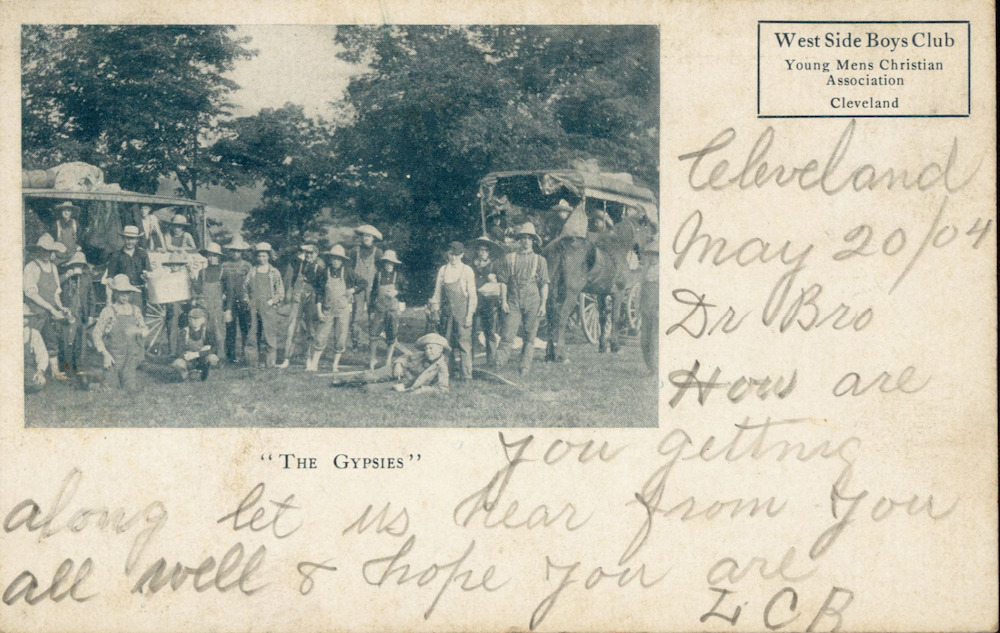 West Side Boys Club
Young Mens Christian
Association
Cleveland
Cleveland
May 20/04
Dr Bro
How are
you getting
along let us hear from you
all well & hope you are
L C B
"The Gypsies"